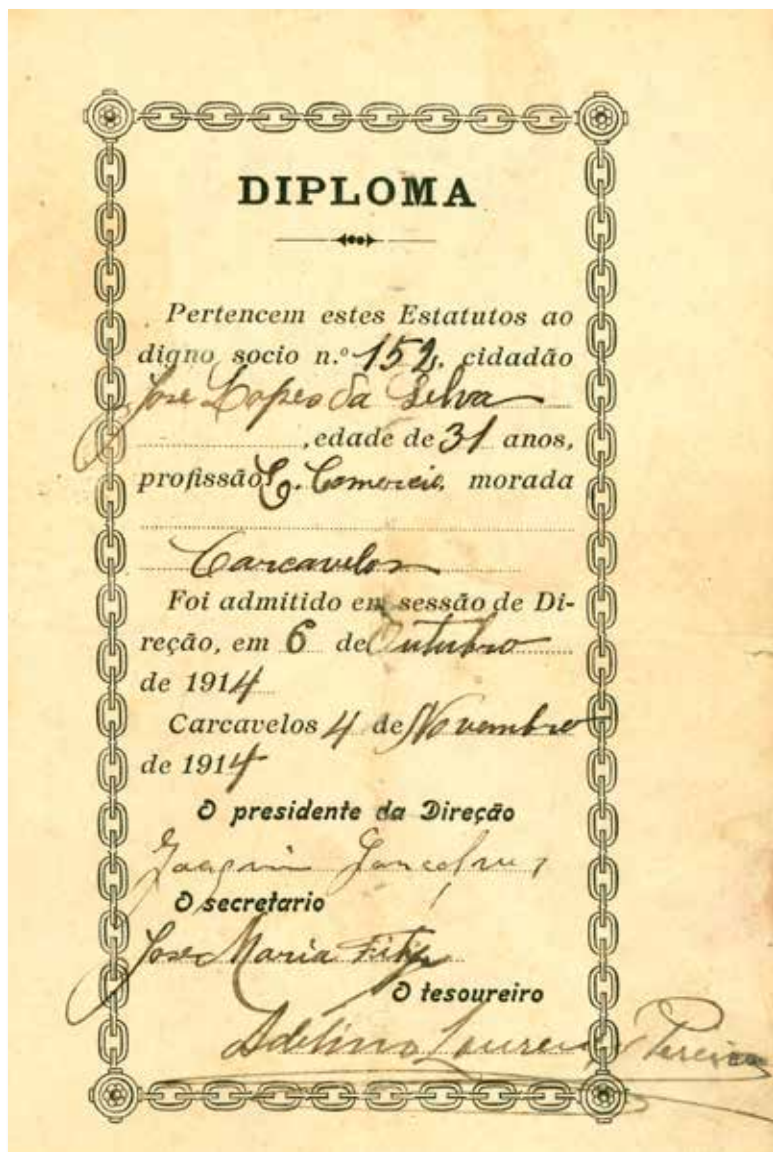 DIPLOMA
Pertencem estes Estatutos ao
digno socio n.º 152, cidadão
José Lopes da Silva
, edade de 31 anos,
profissão E. Comercio, morada
Carcavelos
Foi admitido em sessão de Di-
reção, em 6 de Outubro
de 1914
Carcavelos 4 de Novembro
de 1914
O presidente da Direção
Joaquim Gonçalves
O secretario
José Maria
O tesoureiro
Adelino Lourenço Pereira